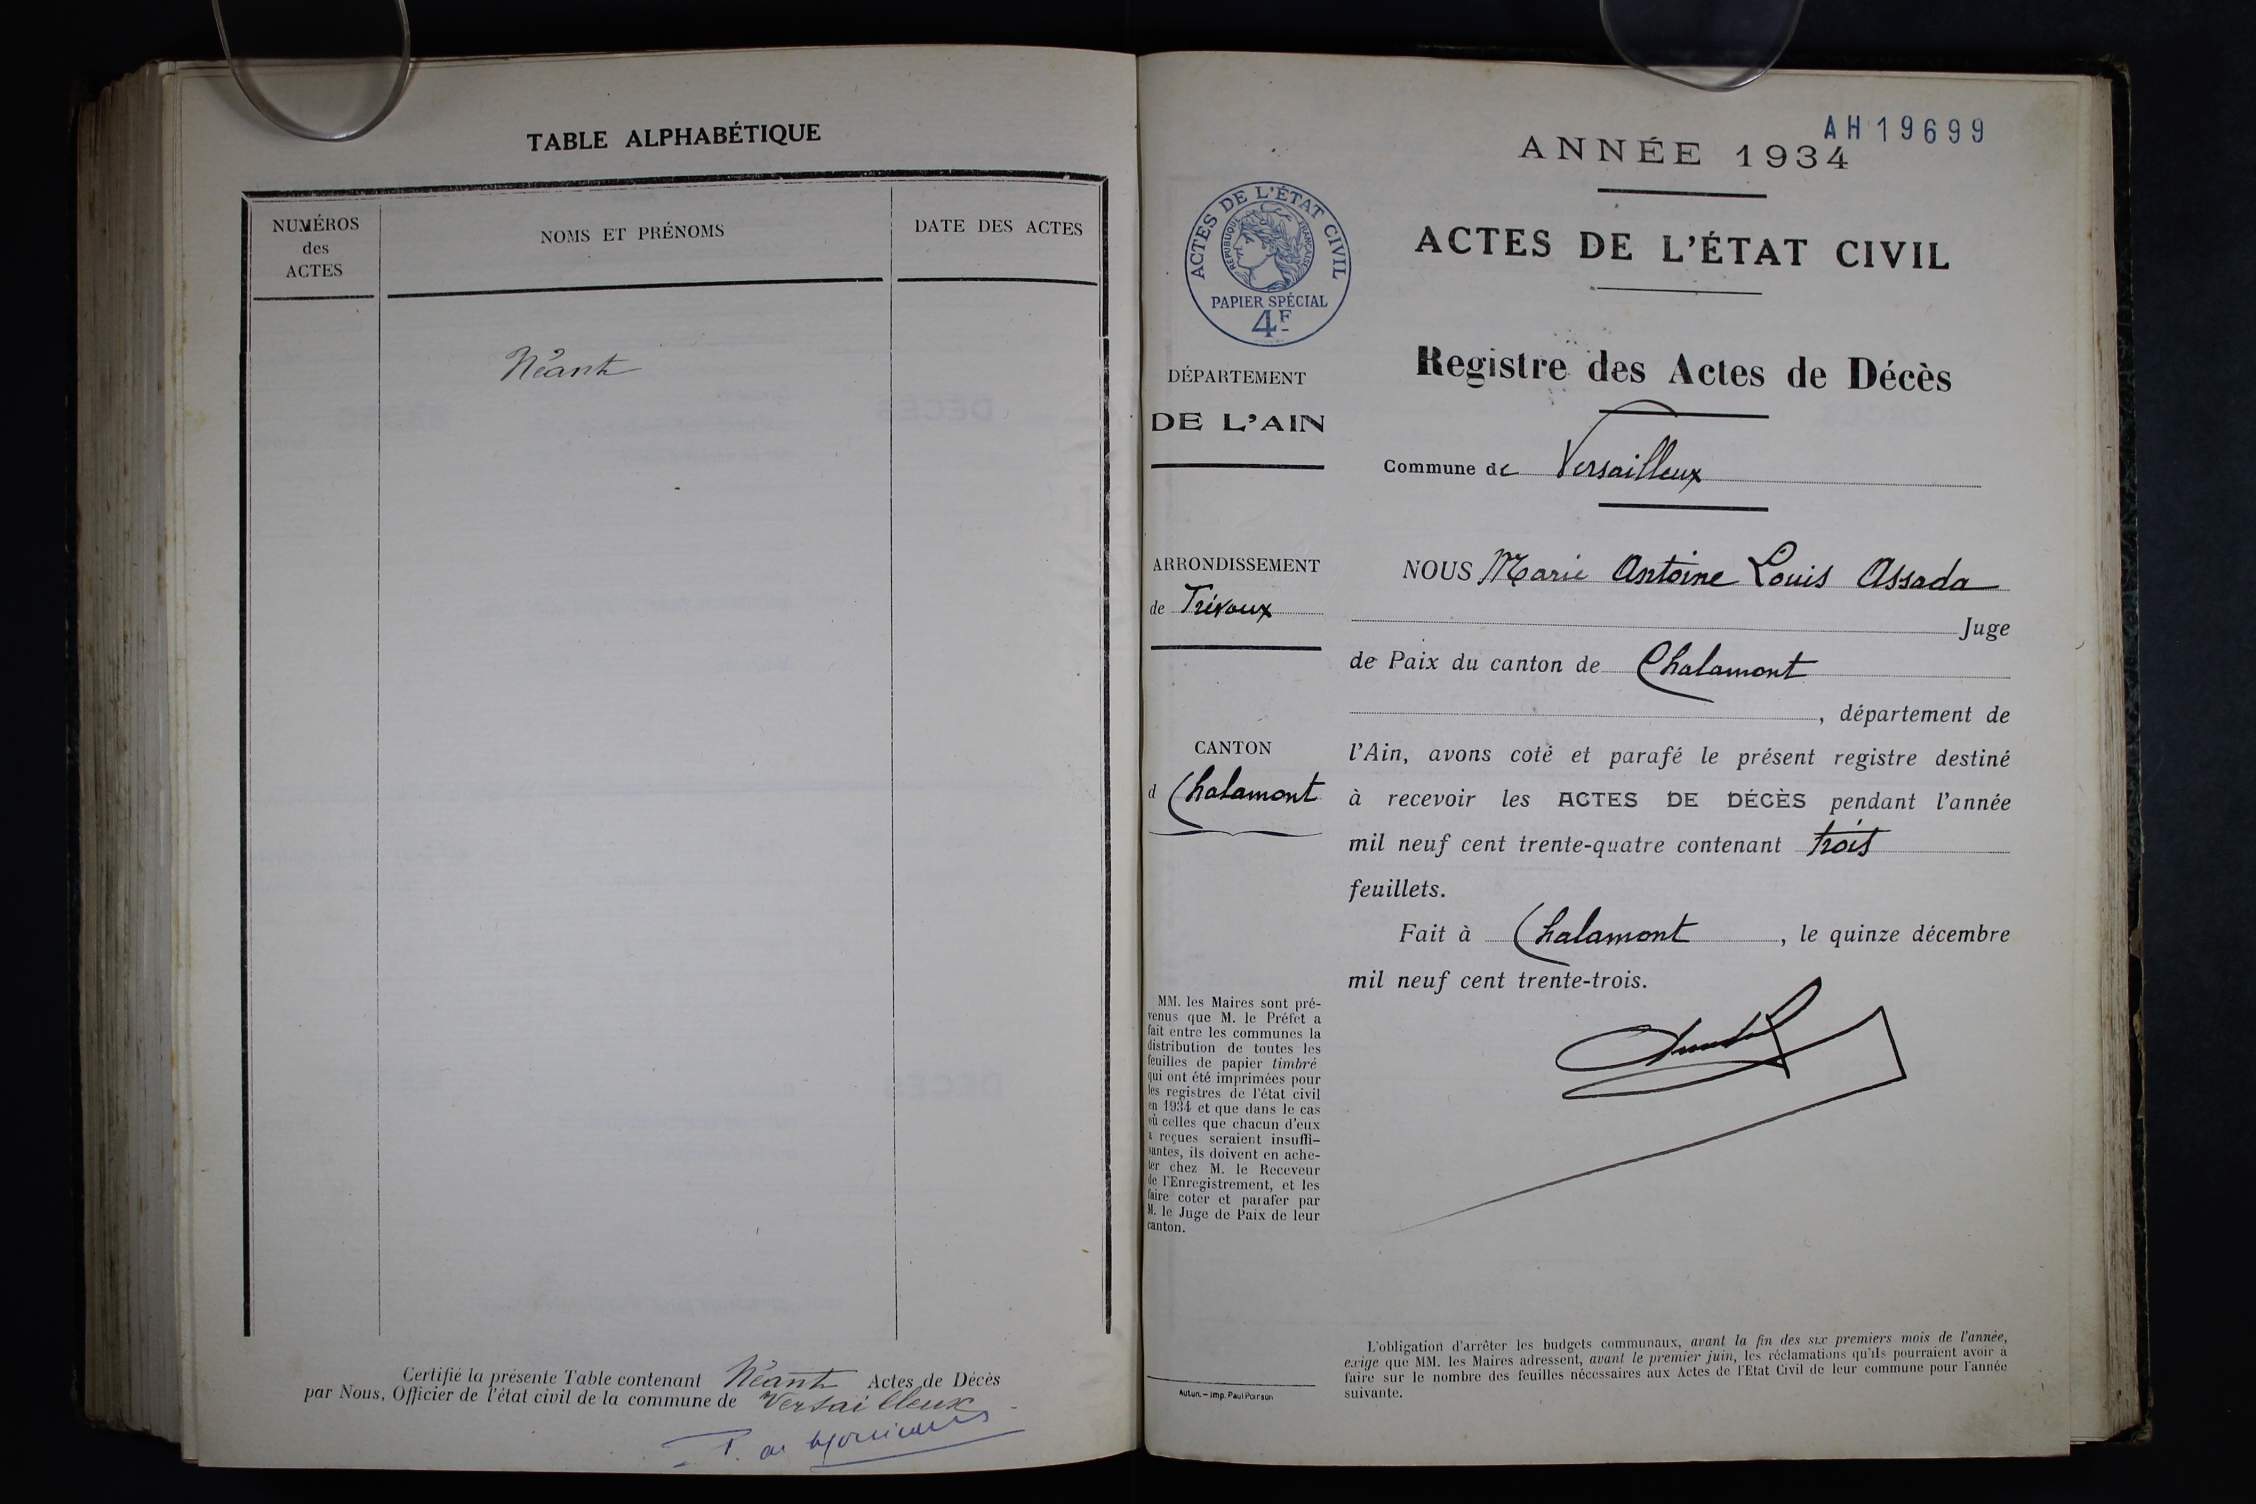 TABLE ALPHABÉTIQUE
NUMÉROS
des
ACTES
NOMS ET PRÉNOMS
DATE DES ACTES
Néant
Certifié la présente Table contenant Néant Actes de Décès
par Nous, Officier de l'état civil de la commune de Versailleux
AH19699
ANNÉE 1934
ACTES DE L'ÉTAT CIVIL
RÉPUBLIQUE FRANÇAISE
PAPIER SPÉCIAL
4F
ACTES DE L'ÉTAT CIVIL
Registre des Actes de Décès
DÉPARTEMENT
DE L'AIN
Commune de Versailleux
ARRONDISSEMENT
de Trévoux
CANTON
d Chalamont
NOUS Marie Antoine Louis Assada
Juge
de Paix du canton de Chalamont
, département de
l'Ain, avons coté et parafé le présent registre destiné
à recevoir les ACTES DE DÉCÈS pendant l'année
mil neuf cent trente-quatre contenant trois
feuillets.
Fait à Chalamont, le quinze décembre
mil neuf cent trente-trois.
MM. les Maires sont pré-
venus que M. le Préfet a
fait entre les communes la
distribution de toutes les
feuilles de papier timbré
qui ont été imprimées pour
les registres de l'état civil
en 1934 et que dans le cas
où celles que chacun d'eux
a reçues seraient insuffi-
santes, ils doivent en ache-
ter chez M. le Receveur
de l'Enregistrement, et les
faire coter et parafer par
M. le Juge de Paix de leur
canton.
Autun. - Imp. Paul Poirson
L'obligation d'arrêter les budgets communaux, avant la fin des six premiers mois de l'année,
exige que MM. les Maires adressent, avant le premier juin, les réclamations qu'ils pourraient avoir à
faire sur le nombre des feuilles nécessaires aux Actes de l'Etat Civil de leur commune pour l'année
suivante.